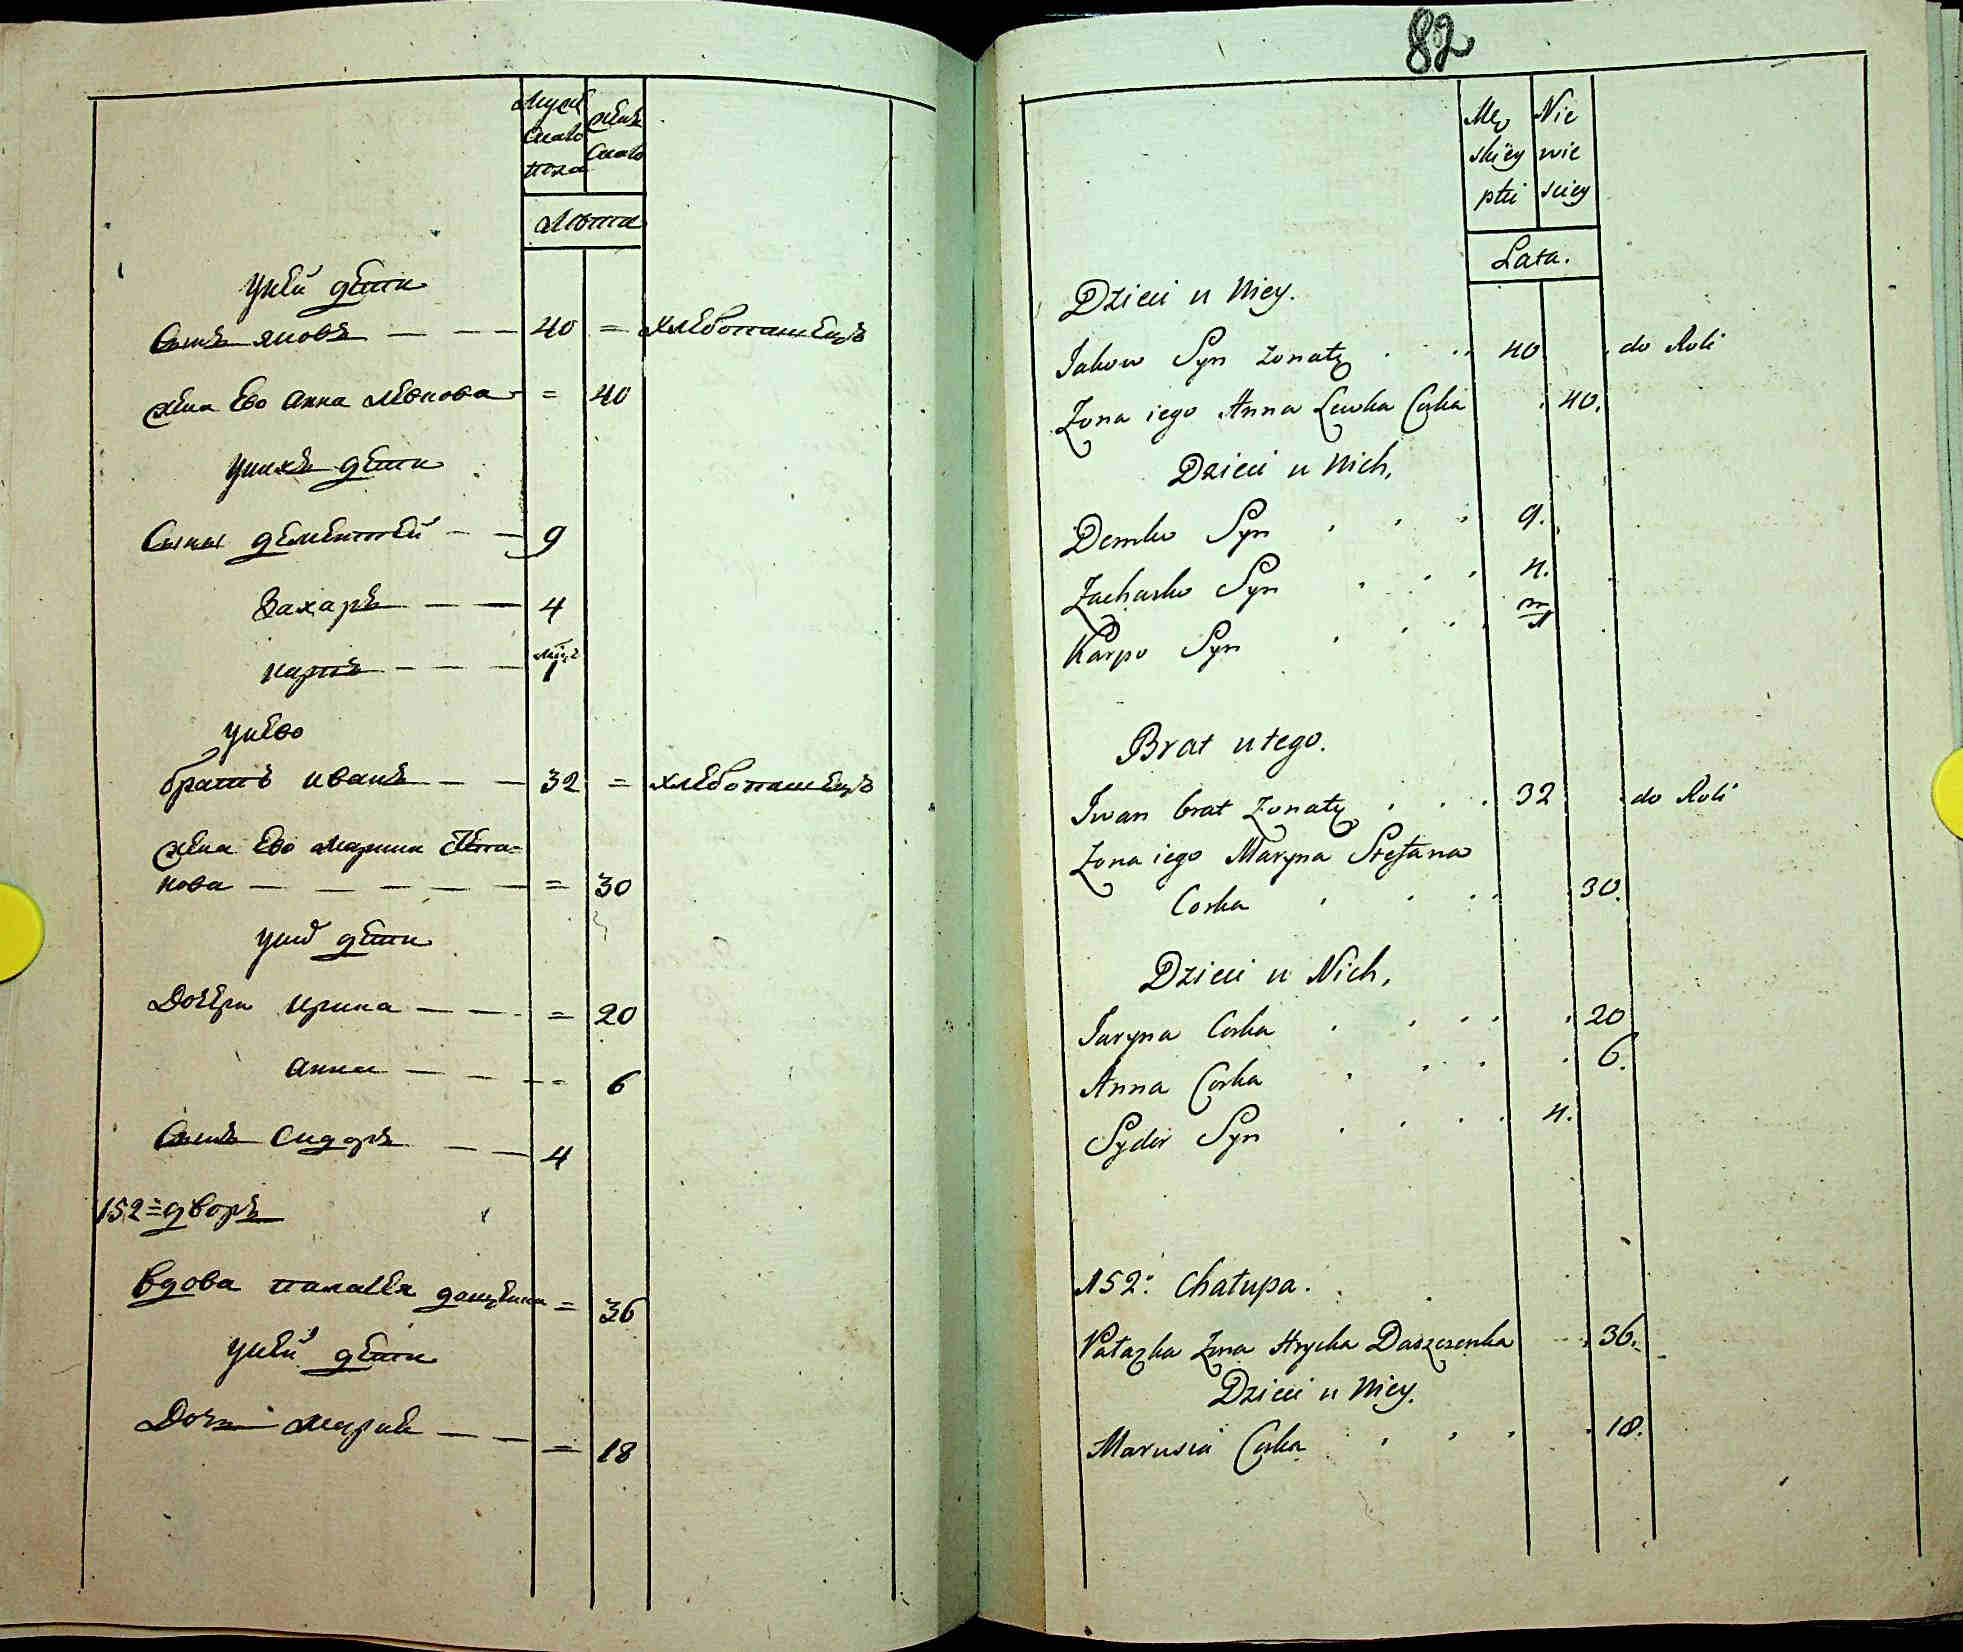 Муж Жен
скаго скаго
пола
Лета
у ней дети
Сынъ яковъ — — — 40 = хлебопашецъ
жена Ево анна левкова = 40
у нихъ дети
Сыны дементей — — 9
Захаръ — — 4
карпъ — — — 1
у нево
братъ иванъ — — 32 = хлебопашецъ
жена Ево марина Степа=
нова — — — — — = 30
у ниⷯ дети
Дочери ирина — — = 20
анна — — — = 6
Сынъ Сидоръ — — 4
152 = дворъ
вдова палагея = 36
у ней дети
Дочь мария — — = 18
82
Mę Nie
skiey wie
płci sciey
Lata.
Dzieci u Niey.
Jakow Syn żonaty 40 do Roli
Żona iego Anna Lewka Corka 40.
Dzieci u Nich,
Demko Syn 9.
Zacharko Syn 4.
m
Karpo Syn 1
Brat u tego.
Iwan brat żonaty 32 do Roli
Żona iego Maryna Stefana
Corka 30.
Dzieci u Nich,
Jaryna Corka 20
Anna Corka 6.
Sydor Syn 4.
152: Chałupa.
Pałazka Żona Hrycka Daszczenka 36.
Dzieci u Niey.
Marusia Corka 18.